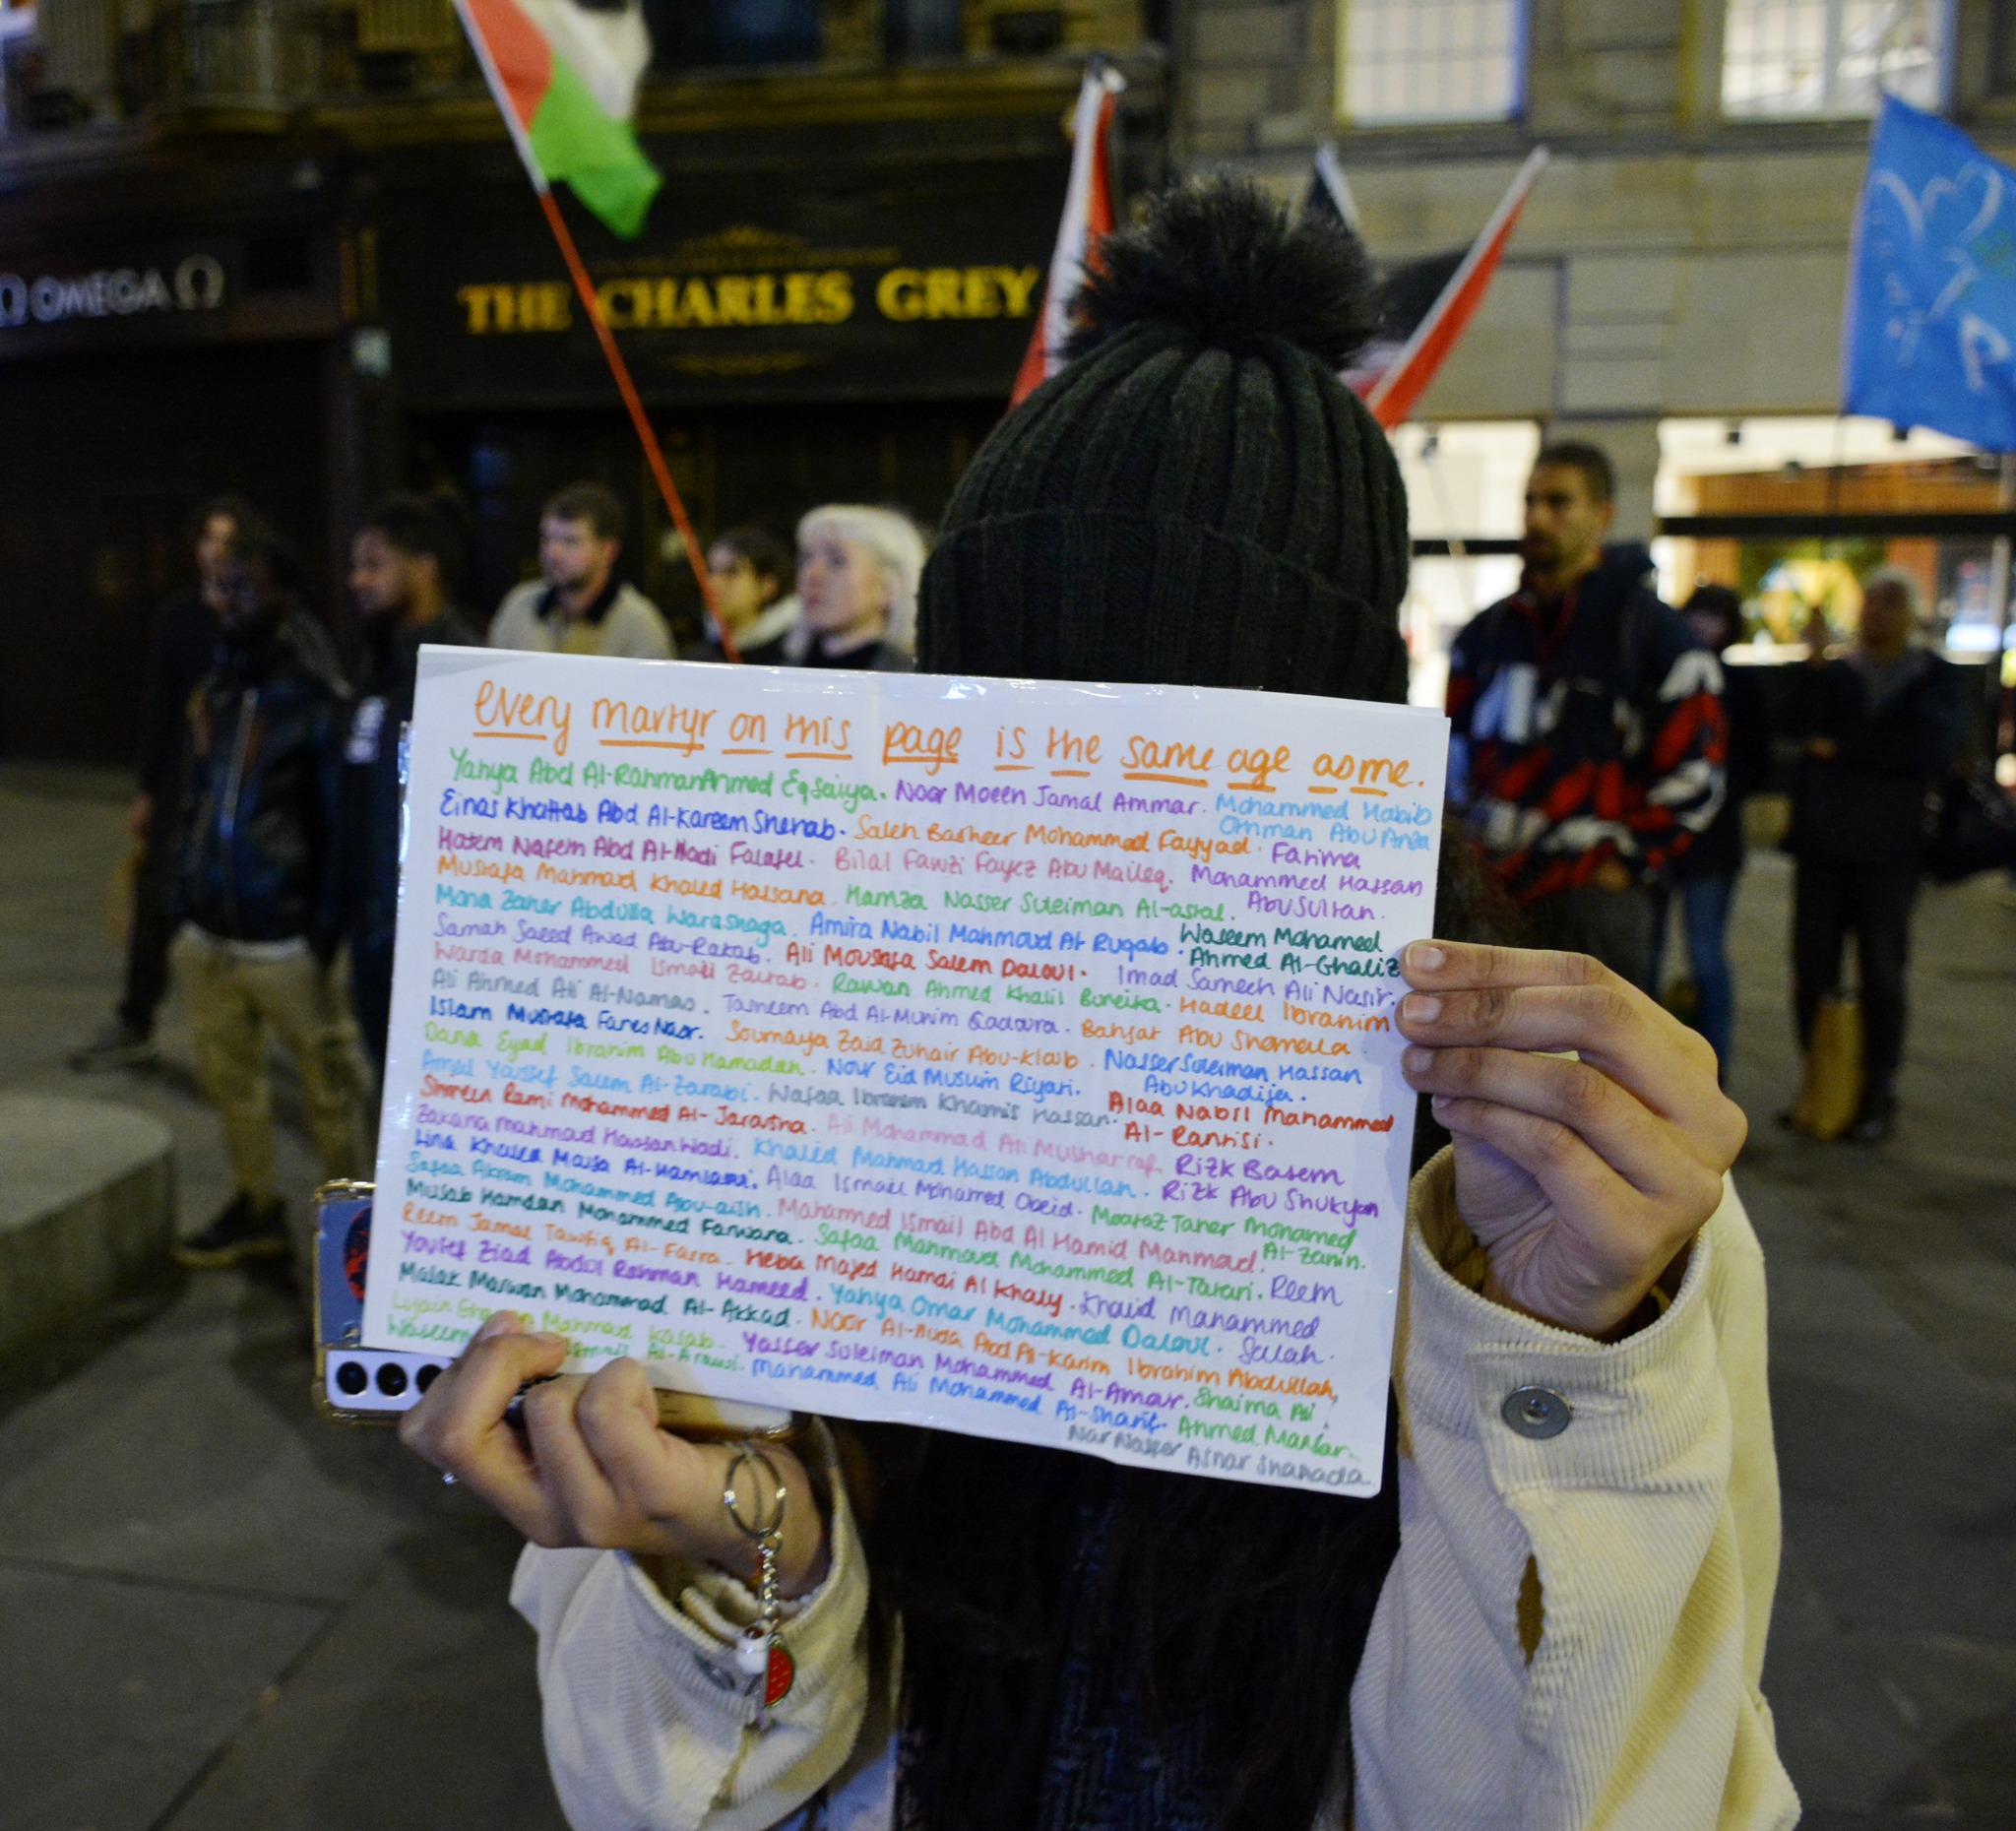 Ω OMEGA Ω
THE CHARLES GREY
every martyr on this page is the same age as me.
Yahya Abd Al-Rahman Ahmed Eqsaiya. Noor Moeen Jamal Ammar. Mohammed Habib
Othman Abu Anza
Einas Khattab Abd Al-Kareem Shehab. Saleh Basheer Mohammad Fayyad. Fatima
Mohammed Hassan
Abu Sultan.
Hatem Natem Abd Al-Hadi Falafel. Bilal Fawzi Fayez Abu Maileq.
Mustafa Mahmoud Khaled Hassana. Hamza Nasser Suleiman Al-astal.
Mona Zaher Abdulla Warashaga. Amira Nabil Mahmoud Al Ruqab. Waseem Mohameed
Ahmed Al-Ghaliz
Samah Saeed Awad Abu-Rakab. Ali Moustafa Salem Daloul. Imad Sameeh Ali Nasir.
Warda Mohammed Ismail Zaurab. Rawan Ahmed Khalil Bureika. Hadeel Ibrahim
Bahjat Abu Shamalla.
Ali Ahmed Ali Al-Namas. Tasneem Abd Al-Munim Qadoura.
Islam Mustafa Fares Nasr. Soumaya Zaid Zuhair Abu-Klaib. Nasser Suleiman Hassan
Abu Khadija.
Dana Eyad Ibrahim Abu Hamadah. Nour Eid Muslim Riyati.
Amal Youssef Salem Al-Zarabi. Wafaa Ibraheem Khamis Hassan. Alaa Nabil Mahammed
Al-Rantisi.
Shireen Rami Mohammed Al-Jaratna. Ali Mohammad Ali Musharraf. Rizk Basem
Rizk Abu Shukyan
Zakaria Mahmoud Hassan Wadi. Khaled Mahmad Hassan Abdullah.
Lina Khaled Al-Hamlawi. Alaa Ismail Mohamed Obeid. Moataz Taher Mohamed
Al-Zanin.
Safaa Akram Mohammed Mahammed Ismail Abd Al Hamid Mahmoad.
Musab Hamdan Mohammed Farwana. Safaa Mahmoud Mohammed Al-Tatari. Reem
Khalid Mahammed
Salah.
Reem Jamal Tawfiq Al-Farra. Heba Majed Hamdi Al Khaly.
Yousef Ziad Abdul Rahman Hameed. Yahya Omar Mohammed Daloul.
Malak Marwan Mohammad Al-Akkad. Noor Al-Huda Abd Al-Karim Ibrahim Abdullah,
Lujain Mahmad Kalab. Yasser Suleiman Mohammed Al-Amour. Shaima Ali.
Waseem Al-Arawi. Mahammed Ali Mohammed Al-Sharif. Ahmed Manfar.
Nar Nasser Ashar Shahada